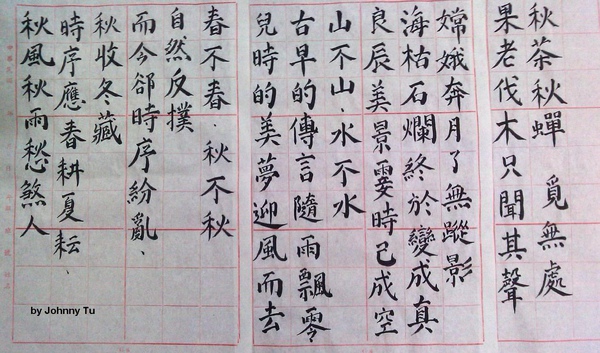 秋風秋雨愁煞人
時序應春耕夏耘、
秋收冬藏
而今卻時序紛亂、
自然反撲
春不春、秋不秋
兒時的美夢迎風而去
古早的傳言隨雨飄零
山不山、水不水
良辰美景霎時已成空
海枯石爛終於變成真
嫦娥奔月了無蹤影
果老伐木只聞其聲
秋茶秋蟬 覓無處
by Johnny Tu